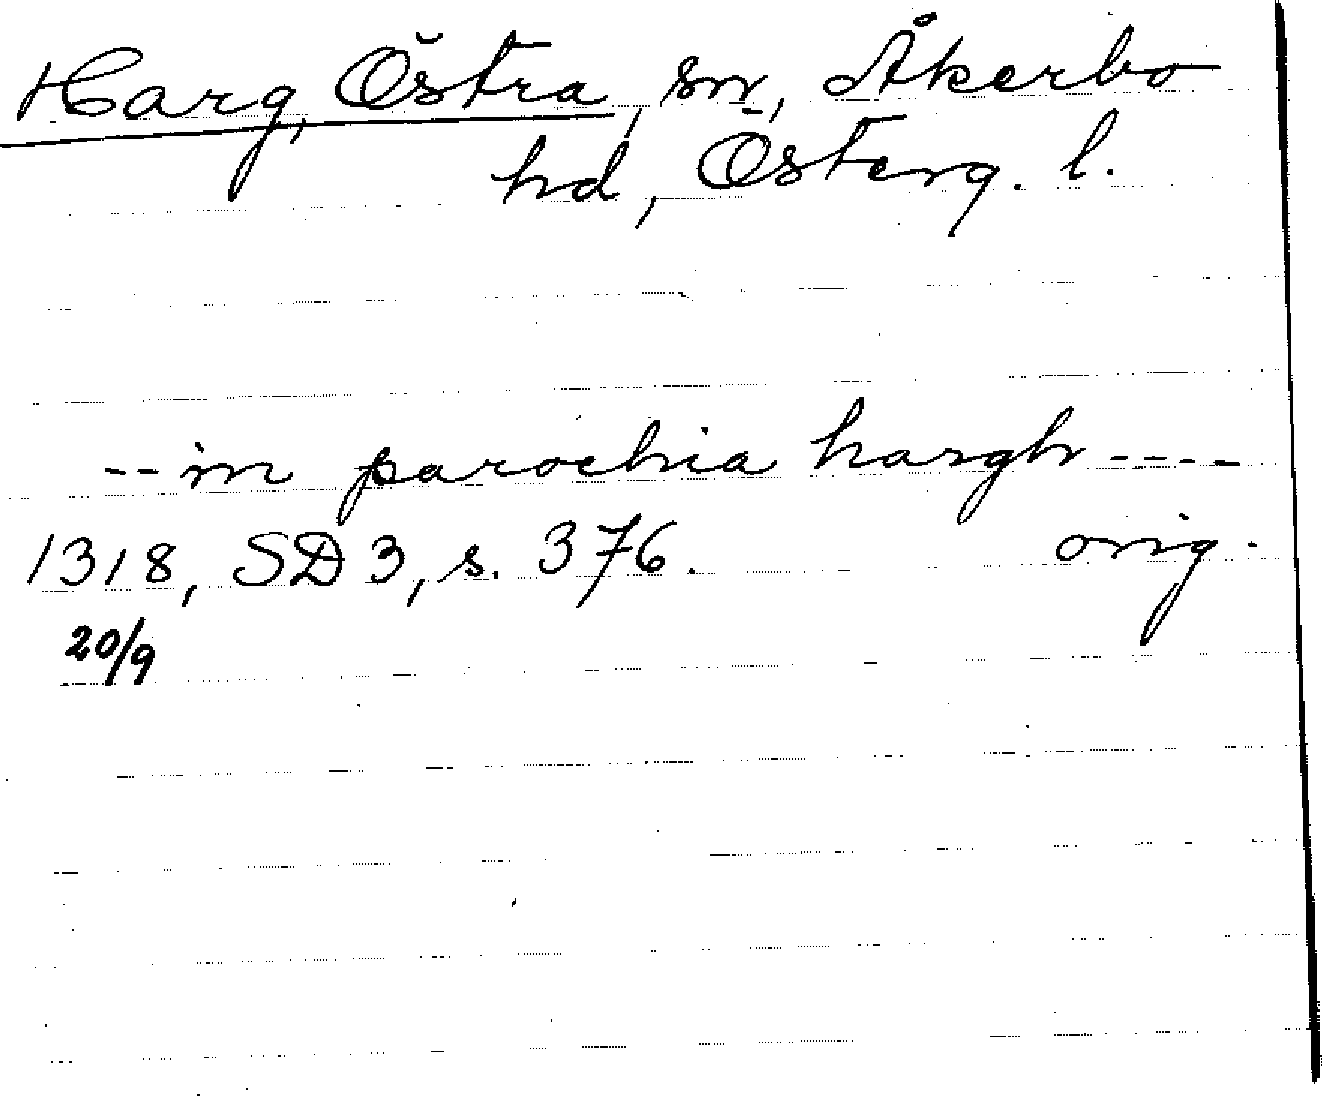 Harg, Östra, sn, Åkerbo
hd, Österg. l.
-- in parochia hargh ----
1318, SD 3, s. 376. orig.
20/9